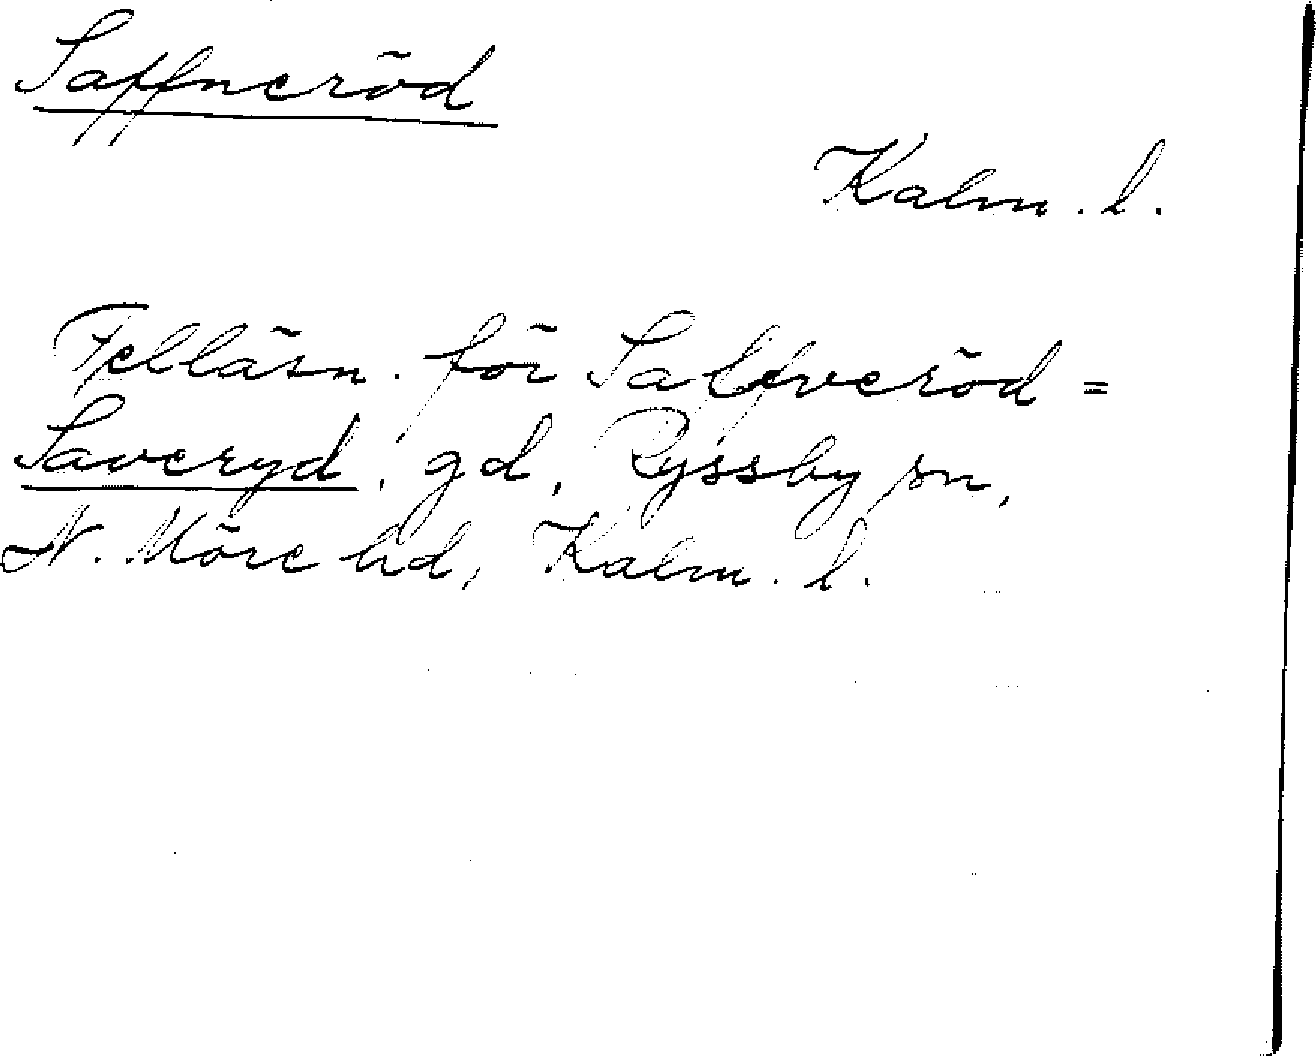 Saffneröd
Kalm. l.
Felläsn. för Salfveröd =
Saveryd, gd, Ryssby sn,
N. Möre hd, Kalm. l.